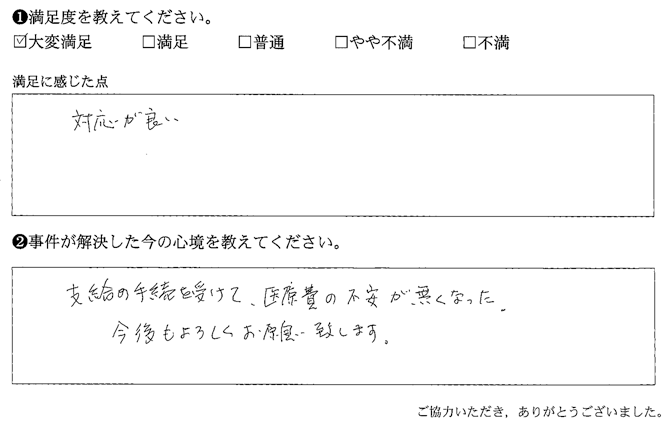 ❶満足度を教えてください。
☑大変満足　□満足　□普通　□やや不満　□不満
満足に感じた点
対応が良い
❷事件が解決した今の心境を教えてください。
支給の手続を受けて、医療費の不安が無くなった。
今後もよろしくお願い致します。
ご協力いただき、ありがとうございました。